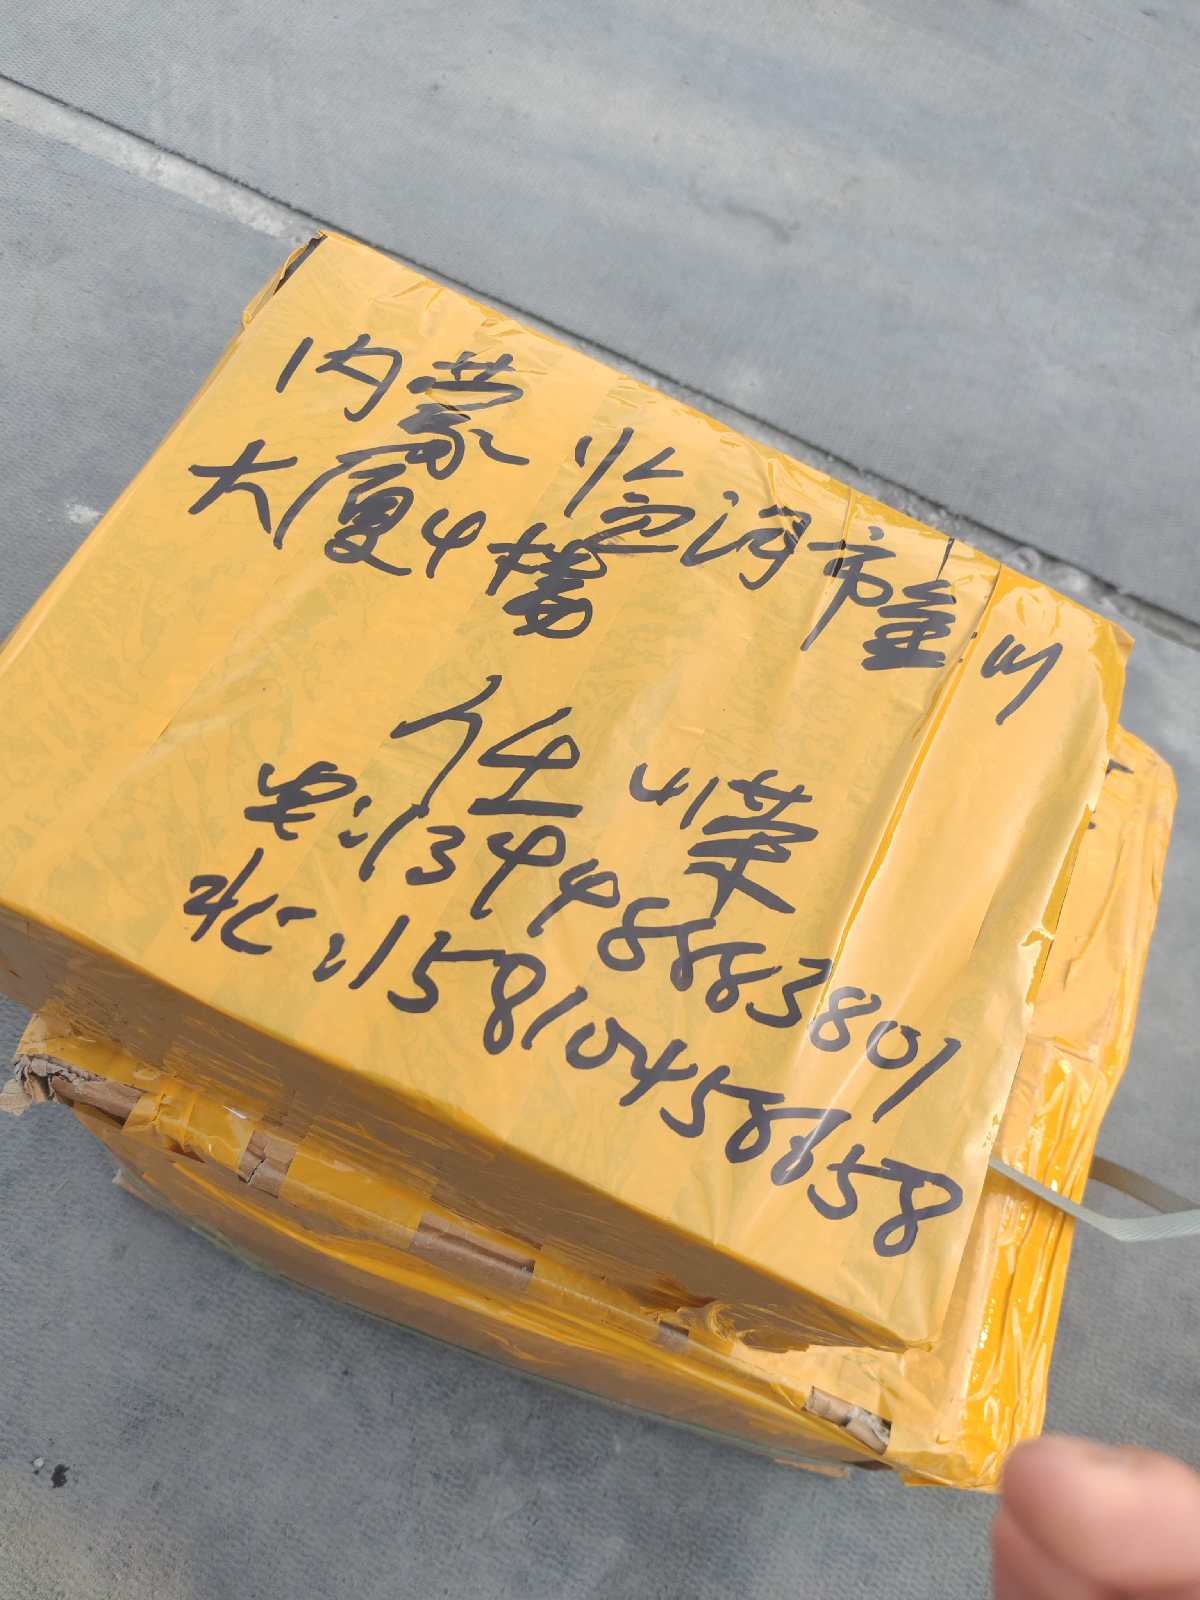 内蒙 临河市金川
大厦4楼
任 川荣
电:13948883801
北:15810458658